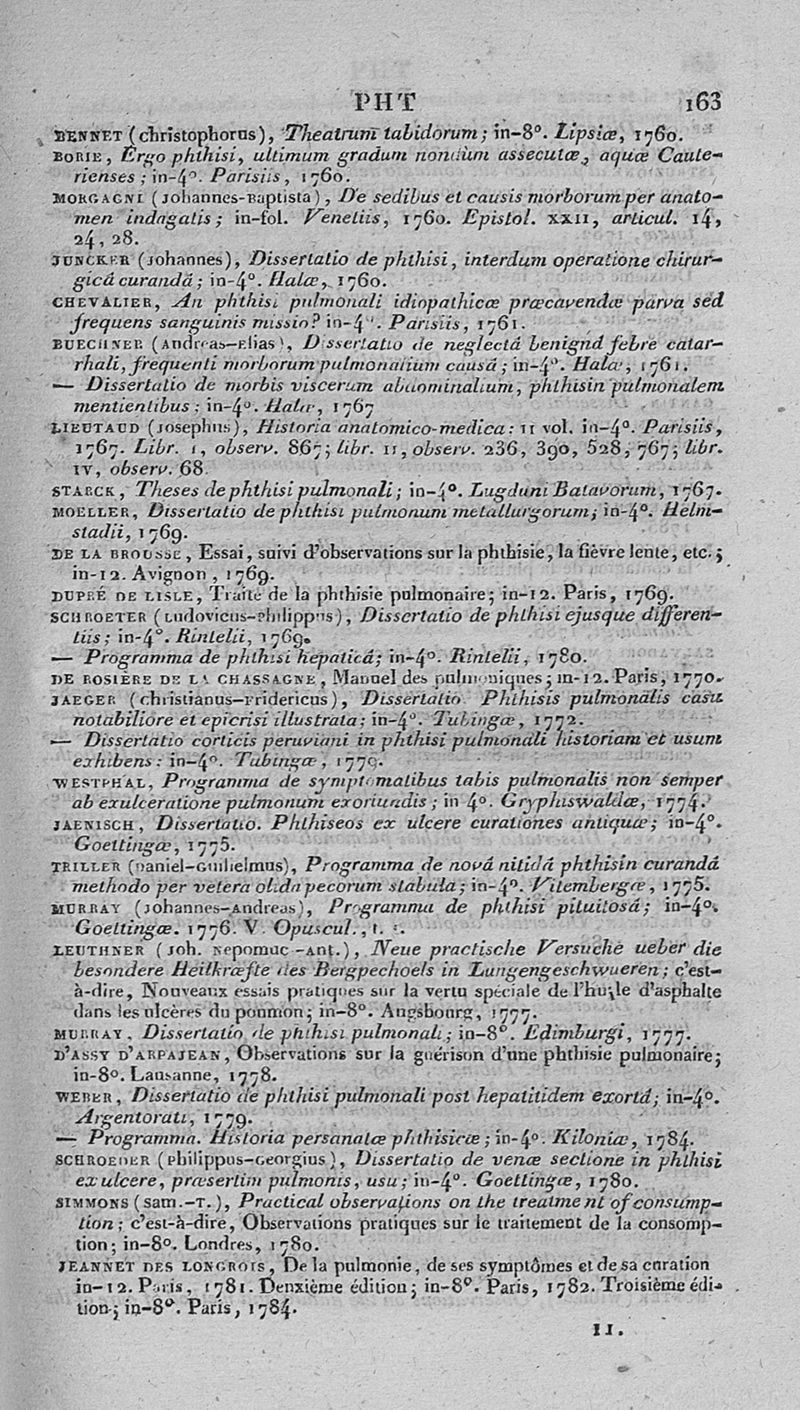 PHT 163
BENNET (christophorus), Theatrum tabidorum; in-8°. Lipsiæ, 1760.
BORIE, Ergo phthisi, ultimum gradum nondùm assecutæ, aquæ Caute-
rienses; in-4°. Parisiis, 1760.
MORGAGNI (johannes-Baptista), De sedibus et causis morborum per anato-
men indagatis; in-fol. Venetiis, 1760. Epistol. XXII, articul. 14,
24, 28.
JUNCKER (johannes), Dissertatio de phthisi, interdum operatione chirur-
gicâ curandâ; in-4°. Halæ, 1760.
CHEVALIER, An phthisi pulmonali idiopathicæ præcavendæ parva sed
frequens sanguinis missio? in-4°. Parisiis, 1761.
BUECHNER (Andreas-Elias), Dissertatio de neglectâ benignâ febre catar-
rhali, frequenti morborum pulmonalium causâ; in-4°. Halæ, 1761.
— Dissertatio de morbis viscerum abdominalium, phthisin pulmonalem
mentientibus; in-4°. Halæ, 1767
LIEUTAUD (josephus), Historia anatomico-medica: II vol. in-4°. Parisiis,
1767. Libr. I, observ. 867; libr. II, observ. 236, 390, 528, 767; libr.
IV, observ. 68.
STARCK, Theses de phthisi pulmonali; in-4°. Lugduni Batavorum, 1767.
MOELLER, Dissertatio de phthisi pulmonum metallurgorum; in-4°. Helm-
stadii, 1769.
DE LA BROUSSE, Essai, suivi d'observations sur la phthisie, la fièvre lente, etc.;
in-12. Avignon, 1769.
DUPRÉ DE LISLE, Traité de la phthisie pulmonaire; in-12. Paris, 1769.
SCHROETER (Ludovicus-philippus), Dissertatio de phthisi ejusque differen-
tiis; in-4°. Rintelii, 1769.
— Programma de phthisi hepaticâ; in-4°. Rintelii, 1780.
DE ROSIÈRE DE LA CHASSAGNE, Manuel des pulmoniques; in-12. Paris, 1770.
JAEGER (christianus-Fridericus), Dissertatio. Phthisis pulmonalis casu
notabiliore et epicrisi illustrata; in-4°. Tubingæ, 1772.
— Dissertatio corticis peruviani in phthisi pulmonali historiam et usum
exhibens: in-4°. Tubingæ, 1779.
WESTPHAL, Programma de symptomatibus tabis pulmonalis non semper
ab exulceratione pulmonum exoriundis; in 4°. Gryphiswaldæ, 1774.
JAENISCH, Dissertatio. Phthiseos ex ulcere curationes antiquæ; in-4°.
Goettingæ, 1775.
TRILLER (Daniel-Guilielmus), Programma de novâ nitidâ phthisin curandâ
methodo per vetera olida pecorum stabula; in-4°. Vitembergæ, 1775.
MURRAY (johannes-Andreas), Programma de phthisi pituitosâ; in-4°.
Goettingæ. 1776. V. Opuscul., t.
LEUTHNER (joh. Nepomuc-Ant.), Neue practische Versuche ueber die
besondere Heilkræfte des Bergpechoels in Lungengeschwueren; c'est-
à-dire, Nouveaux essais pratiques sur la vertu spéciale de l'huile d'asphalte
dans les ulcères du poumon; in-8°. Augsbourg, 1777.
MURRAY, Dissertatio de phthisi pulmonali; in-8°. Edimburgi, 1777.
D'ASSY D'ARPAJEAN, Observations sur la guérison d'une phthisie pulmonaire;
in-8°. Lausanne, 1778.
WEBER, Dissertatio de phthisi pulmonali post hepatitidem exortâ; in-4°.
Argentorati, 1779.
— Programma. Historia persanatæ phthisicæ; in-4°. Kiloniæ, 1784.
SCHROEDER (Philippus-Georgius), Dissertatio de venæ sectione in phthisi
ex ulcere, præsertim pulmonis, usu; in-4°. Goettingæ, 1780.
SIMMONS (Sam.-T.), Practical observations on the treatment of consump-
tion; c'est-à-dire, Observations pratiques sur le traitement de la consomp-
tion; in-8°. Londres, 1780.
JEANNET DES LONGROIS, De la pulmonie, de ses symptômes et de sa curation
in-12. Paris, 1781. Deuxième édition; in-8°. Paris, 1782. Troisième édi-
tion; in-8°. Paris, 1784.
11.